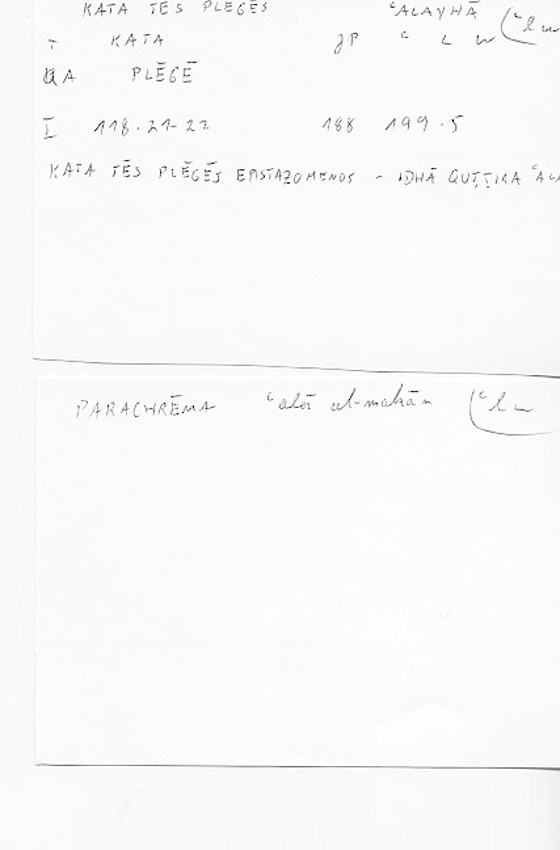 KATA TĒS PLĒGĒS ʿALAYHĀ (ʿlw
T KATA JP ʿ L W
QA PLĒGĒ
I 118.21-22 188 199.5
KATA TĒS PLĒGĒS EPISTAZOMENOS - IDHĀ QUṬṬIRA ʿALA
PARACHRĒMA ʿalā al-makān (ʿlw